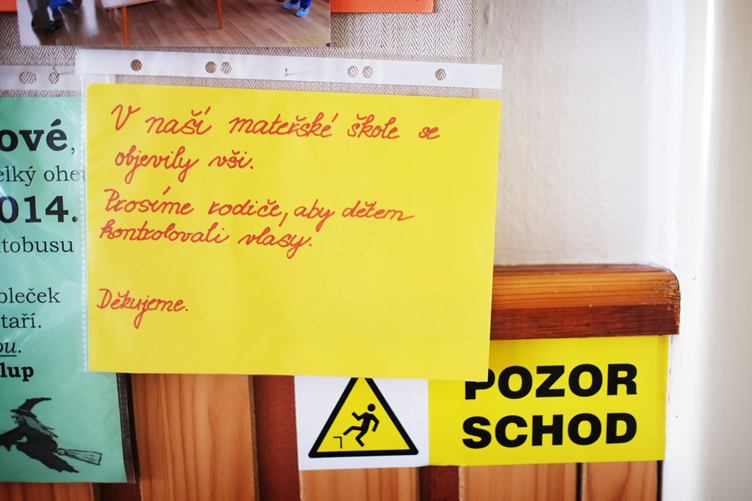 V naší mateřské škole se
objevily vši.
Prosíme rodiče, aby dětem
kontrolovali vlasy.
Děkujeme.
ové,
elký ohe
014.
tobusu
pleček
taří.
ou.
lup
POZOR
SCHOD